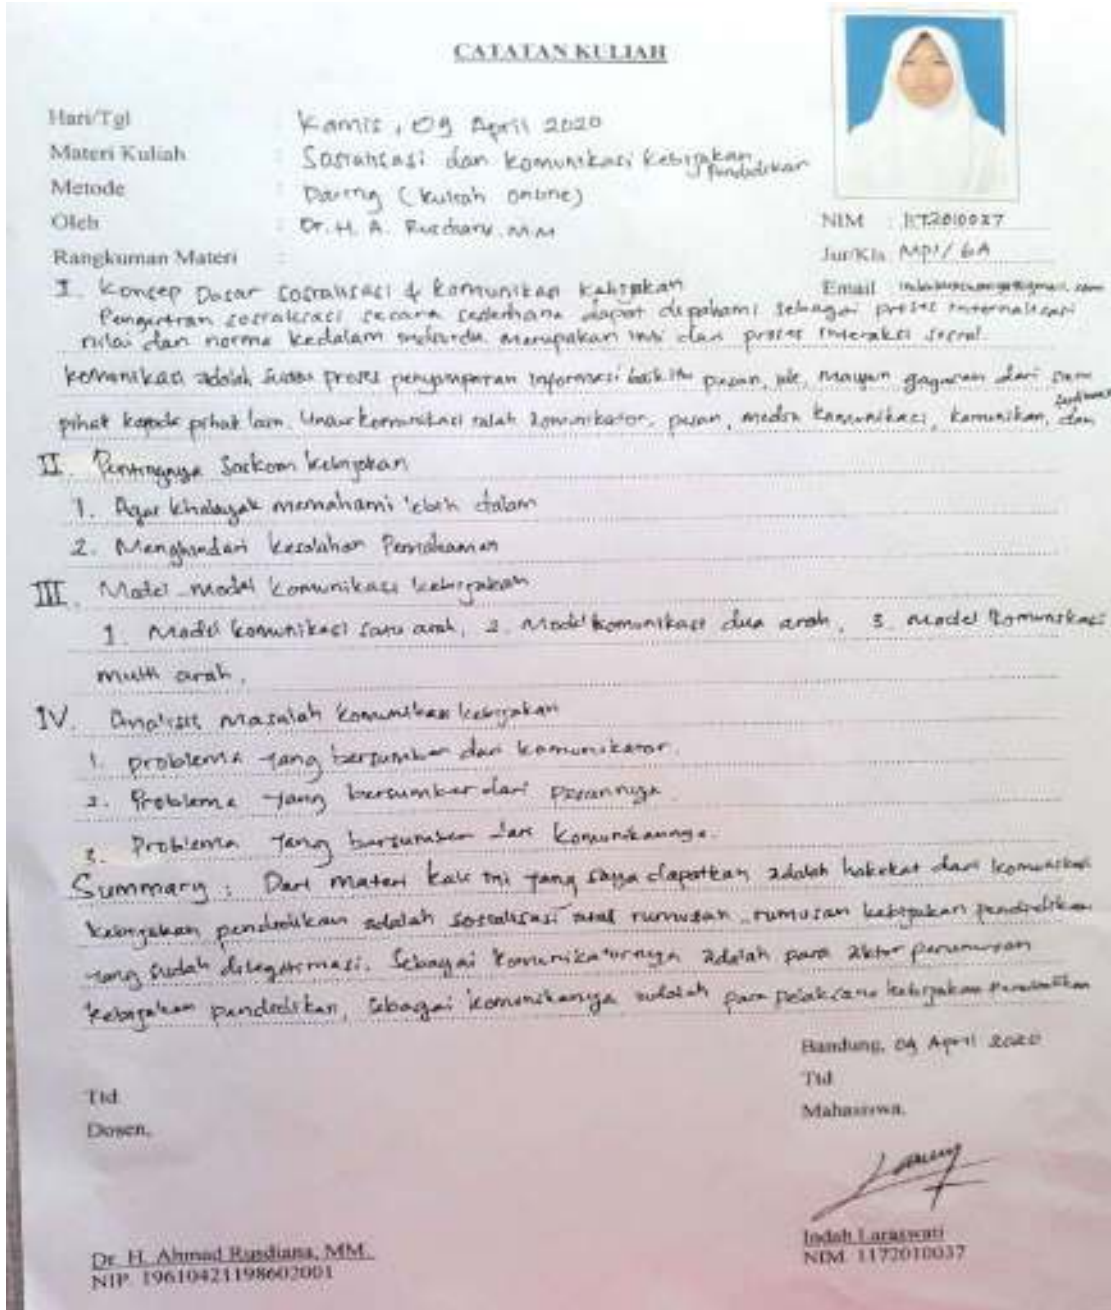 CATATAN KULIAH
Hari/Tgl : Kamis, 09 April 2020
Materi Kuliah : Sosialisasi dan komunikasi Kebijakan Pendidikan
Metode : Daring (kuliah online)
Oleh : Dr. H. A. Rusdiana, M.M
NIM :
Rangkuman Materi :
Jur/Kls MPI/ 6A
I. Konsep Dasar sosialisasi & komunikasi kebijakan
Email
Pengertian sosialisasi secara sederhana dapat dipahami sebagai proses internalisasi
nilai dan norma kedalam individu merupakan inti dari proses interaksi sosial.
komunikasi adalah suatu proses penyampaian informasi baik itu pesan, ide, maupun gagasan dari satu
pihat kepada pihat lain. Unsur komunikasi ialah komunikator, pesan, media komunikasi, komunikan, dan
II. Pentingnya Soskom kebijakan
1. Agar khalayak memahami lebih dalam
2. Menghindari kesalahan Pemahaman
III. Model-model komunikasi kebijakan
1. Model komunikasi satu arah, 2. Model komunikasi dua arah, 3. Model komunikasi
multi arah.
IV. Analisis masalah komunikasi kebijakan
1. problema yang bersumber dari komunikator.
2. Problema yang bersumber dari pesannya
3. Problema yang bersumber dari komunikannya.
Summary : Dari materi kali ini yang saya dapatkan adalah hakekat dari komunikasi
kebijakan pendidikan adalah sosialisasi atas rumusan-rumusan kebijakan pendidikan
yang sudah dilegitimasi. Sebagai komunikatornya adalah para aktor perumusan
kebijakan pendidikan, sebagai komunikanya adalah para pelaksana kebijakan
Bandung, 09 April 2020
Ttd
Ttd
Mahasiswa,
Dosen,
Indah Laraswati
NIM. 1172010037
Dr. H. Ahmad Rusdiana, MM.
NIP. 196104211986​02001